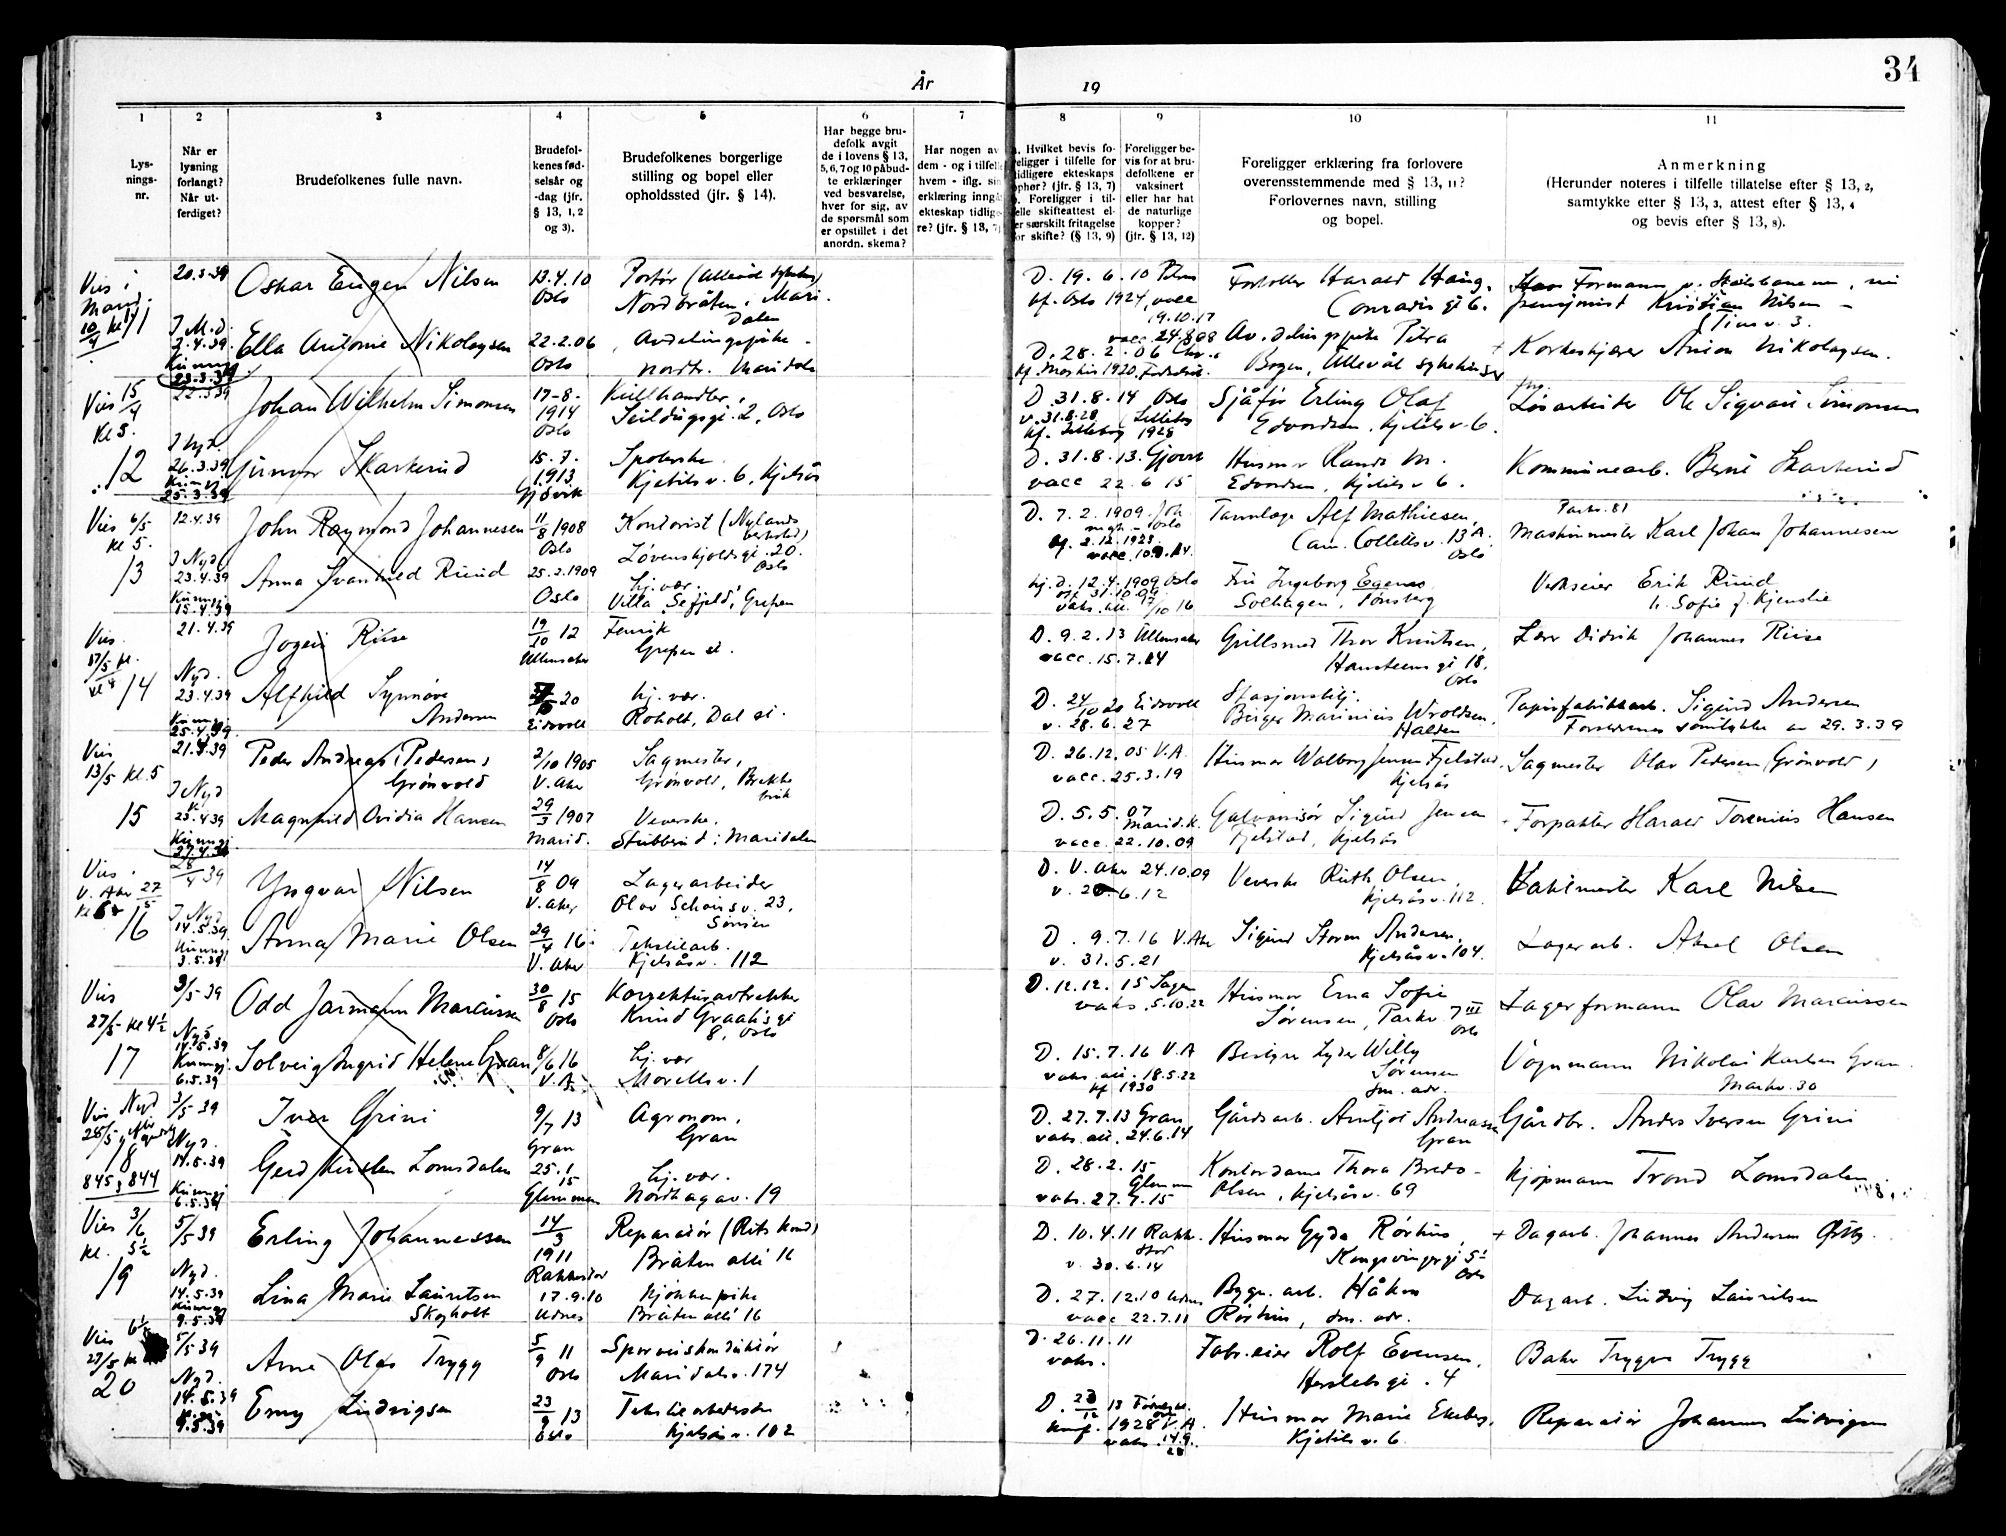 34
År 19
1
Lys-
nings-
nr.
2
Når er
lysning
forlangt?
Når ut-
ferdiget?
3
Brudefolkenes fulle navn.
4
Brudefol-
kenes fød-
selsår og
-dag (jfr.
§ 13, 1, 2
og 3).
5
Brudefolkenes borgerlige
stilling og bopel eller
opholdssted (jfr. § 14).
6
Har begge bru-
defolk avgit
de i lovens § 13,
5, 6, 7 og 10 påbud-
te erklæringer
ved besvarelse,
hver for sig, av
de spørsmål som
er opstillet i det
anordn. skema?
7
Har nogen av
dem - og i tilfelle
hvem - iflg. sin
erklæring inngå
ekteskap tidlige-
re? (jfr. § 13, 7)
8
Hvilket bevis fo-
religger i tilfelle for
tidligere ekteskaps
ophør? (jfr. § 13, 7)
Foreligger i til-
elle skifteattest el-
er særskilt fritagelse
or skifte? (§ 13, 9)
9
Foreligger be-
vis for at bru-
defolkene er
vaksinert
eller har hat
de naturlige
kopper?
(jfr. § 13, 12)
10
Foreligger erklæring fra forlovere
overensstemmende med § 13, 11?
Forlovernes navn, stilling
og bopel.
11
Anmerkning
(Herunder noteres i tilfelle tillatelse efter § 13, 2,
samtykke efter § 13, 3, attest efter § 13, 4
og bevis efter § 13, 8).
Vies i
Marid.
10/4 kl
11
20.3.39
Oskar Eugen Nilsen
13.4.10
Oslo
Portør (Ullevål sykehus)
Nordbråten, Mari-
dalen
D. 19.6.10
kf. Oslo 1924, vacc
19.10.17
Harald Haug,
Conradis gt 6.
Formann v. Skotsbanene, nu
pensjonist Kristian Nilsen
2.4.39
23.3.39
Ella Antonie Nikolaysen
22.2.06
Oslo
Avdelingspike
Nordbr. Maridalen
vacc. 24.8.08
D. 28.2.06
Avdelingspike Petra
Bogen, Ullevål sykehus
Anton Nikolaysen.
Vies 15/4
kl 3.
12
22.3.39
Johan Wilhelm Simonsen
17-8-
1914
Oslo
Seildugsgt. 2, Oslo
D 31.8.14 Oslo
v. 31.8.28
1928
Sjåfør Erling Olaf
Edvardsen, Kjetils v. 6.
Løsarbeider Ole Sigvart Simonsen
26.3.39
25.3.39
Gunvor Skarkerud
15.7.
1913
Gjøvik
Spolerske
Kjetils v. 6, Kjelsås
D. 31.8.13. Gjøvik
vacc 22 6 15
Husmor Randi M.
Edvardsen, Kjetils v 6.
Kommunearb. Bernt Skarkerud
Vies 6/5
kl 5.
13
12.4.39
John Raymond Johannesen
11/8 1908
Oslo
Kontorist (Nylands
verksted)
Løvenskjolds gt. 20.
Oslo
D. 7.2.1909 Joh.
Oslo
kf. 2.12.1923
Tannlæge Alf Mathiesen,
Cam. Colletts v. 13 A.
Oslo
Parkv. 81
Maskinmester Karl Johan Johannesen
I Nyd
23.4.39
15.4.39
Anna Svanhild Ruud
25.2.1909
Oslo
hj. vær.
Villa Sefjeld, Grefsen
D. 12.4.1909 Oslo
Fru Ingeborg Egenæs
Solhagen, Tønsberg
Verkseier Erik Ruud
h. Sofie f. Kjenslie
Vies.
17/5 kl.
14
21.4.39
Riise
19/10 12
Ullensaker
Grefsen st.
D. 9.2.13 Ullensaker
vacc. 15.7.14
Gullsmed Thor Knutsen,
Hansteens gt 18.
Oslo
Lærer Didrik Johannes Riise
Nyd.
23.4.39
25.4.39.
Alfhild Synnøve
Andersen
20
Eidsvoll
hj. vær.
Råholt, Dal st.
D. 24/10 20 Eidsvoll
v. 28.6.27
Stasjonsbetj.
Birger Marinius Wroldsen,
Halden
Papirfabrikkarb. Sigurd Andersen
Foreldrenes samtykke av 29.3.39
Vies
13/5 kl. 5
15
21.4.39
Peder Andreas Pedersen,
Grønvold
2/10 1905
V. Aker
Sagmester,
Grønvold, Brekke
bruk
D. 26.12.05 V.A.
vacc. 25.3.19
Husmor Walborg Jensen Fjelstad,
Kjelsås
Sagmester Olav Pedersen Grønvold
I Nyd
23.4.39
27.4.39
Magnhild Ovidia Hansen
29/3 1907
Marid.
Veverske.
Stubberud i Maridalen
D. 5.5.07
Marid. k.
vacc. 22.10.09
Galvanisør Sigurd Jensen
Fjelstad, Kjelsås
Forpakter Harald Torenius Hansen
Vies.
V. Aker 27/5
16
28/4 39
Yngvar Nilsen
14/8 09
V. aker
Lagerarbeider
Olav Schous v. 23,
Sinsen
D. V. Aker 24.10.09
6.12
Veverske Ruth Olsen,
Kjelsåsv. 112.
Karl Nilsen
I Nyd.
14.5.39.
3.5.39
Anna Marie Olsen
29/4 16
V. aker
Tekstilarb.
Kjelsåsv. 112
D. 9.7.16 V. Aker
v. 31.5.21
Sigurd Storm Andersen,
Kjelsåsv. 104.
Lagerarb. Aksel Olsen
Vies
27/5 kl 4½
17
3/5 39
Odd Jarmann Marcussen
30/8 15
Oslo
Korrekturavtrekker
Knud Graahs gt
8, Oslo
D. 12.12.15 Sagene
vaks. 5.10.22
Husmor Erna Sofie
Sørensen, Parkv 7 III
Oslo
Lagerformann Olav Marcussen
Nyd
14.5.39
6.5.39
Solveig Ingrid Helene Gran
8/6 16
V.A.
hj. vær
Morells v. 1
D. 15.7.16 V.A
18.5.22
kf 1930
Bestyrer Lyder Willy
Sørensen
sm. adr.
Vognmann Nikolai Karlsen Gran
Markv. 30
Vies Nyd
28/5
18
845, 844
3/5 39
Iver Grini
9/7 13
Gran
Agronom,
Gran
D. 27.7.13 Gran
vaks. att. 24.6.14
Gårdsarb. Arnljot Andreassen
Gran
Gårdbr. Anders Iversen Grini
Nyd.
14.5.39
6.5.39
Gerd Kirsten Lomsdalen
25.1
15
Glemmen
hj. vær.
Nordhagav. 19
D. 28.2.15
Glemmen
vaks. 27.7.15
Kontordame Thora Bredo-
Olsen, Kjelsåsv. 69
Kjøpmann Trond Lomsdalen
Vies 3/6
kl. 5½
19
5/5 39
Erling Johannessen
14/3
1911
Rakkestad
Reparatør
Bråten allé 16
D. 10.4.11 Rakke-
stad
v. 30.6.14
Husmor Gyda Rørhus,
Kongsvingergt 5
Oslo
Dagarb. Johannes Andersen
Nyd.
14.5.39
9.5.39
Lina Marie Lauritsen
Skogholt
17.9.10
Udnes
Kjøkkenpike
Bråten allé 16
D. 27.12.10 Udnes
vacc 22.7.11
Bygn. arb. Håkon
Rørhus, sm. adr.
Dagarb. Ludvig Lauritsen
Vies
27/5 kl
20
5/5 39
Arne Olaf Trygg
5/9 11
Oslo
Sporveiskonduktør
Maridalsv. 174
D. 26.11.11
vaks.
Fabr.eier Rolf Evensen,
Herslebs gt. 4
Baker Trygve Trygg
Nyd.
14.5.39
9.5.39
Emy Ludvigsen
23/9 13
Oslo
Tekstilarbeiderske
Kjelsåsv. 102
1928 V.A.
Husmor Marie Ekeberg,
Kjetils v. 6
Reparatør Johannes Ludvigsen